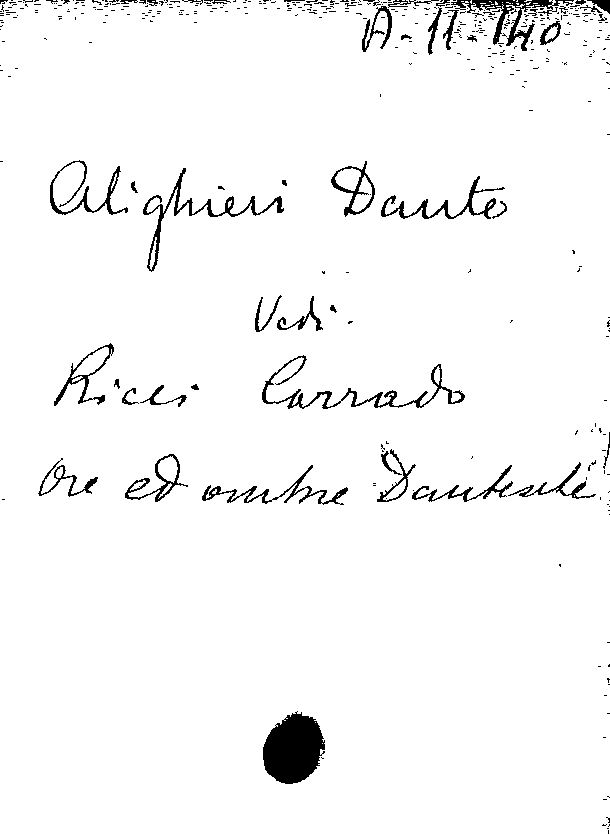 A-11-140
Alighieri Dante
Vedi.
Ricci Corrado
Ore ed ombre Dantesche